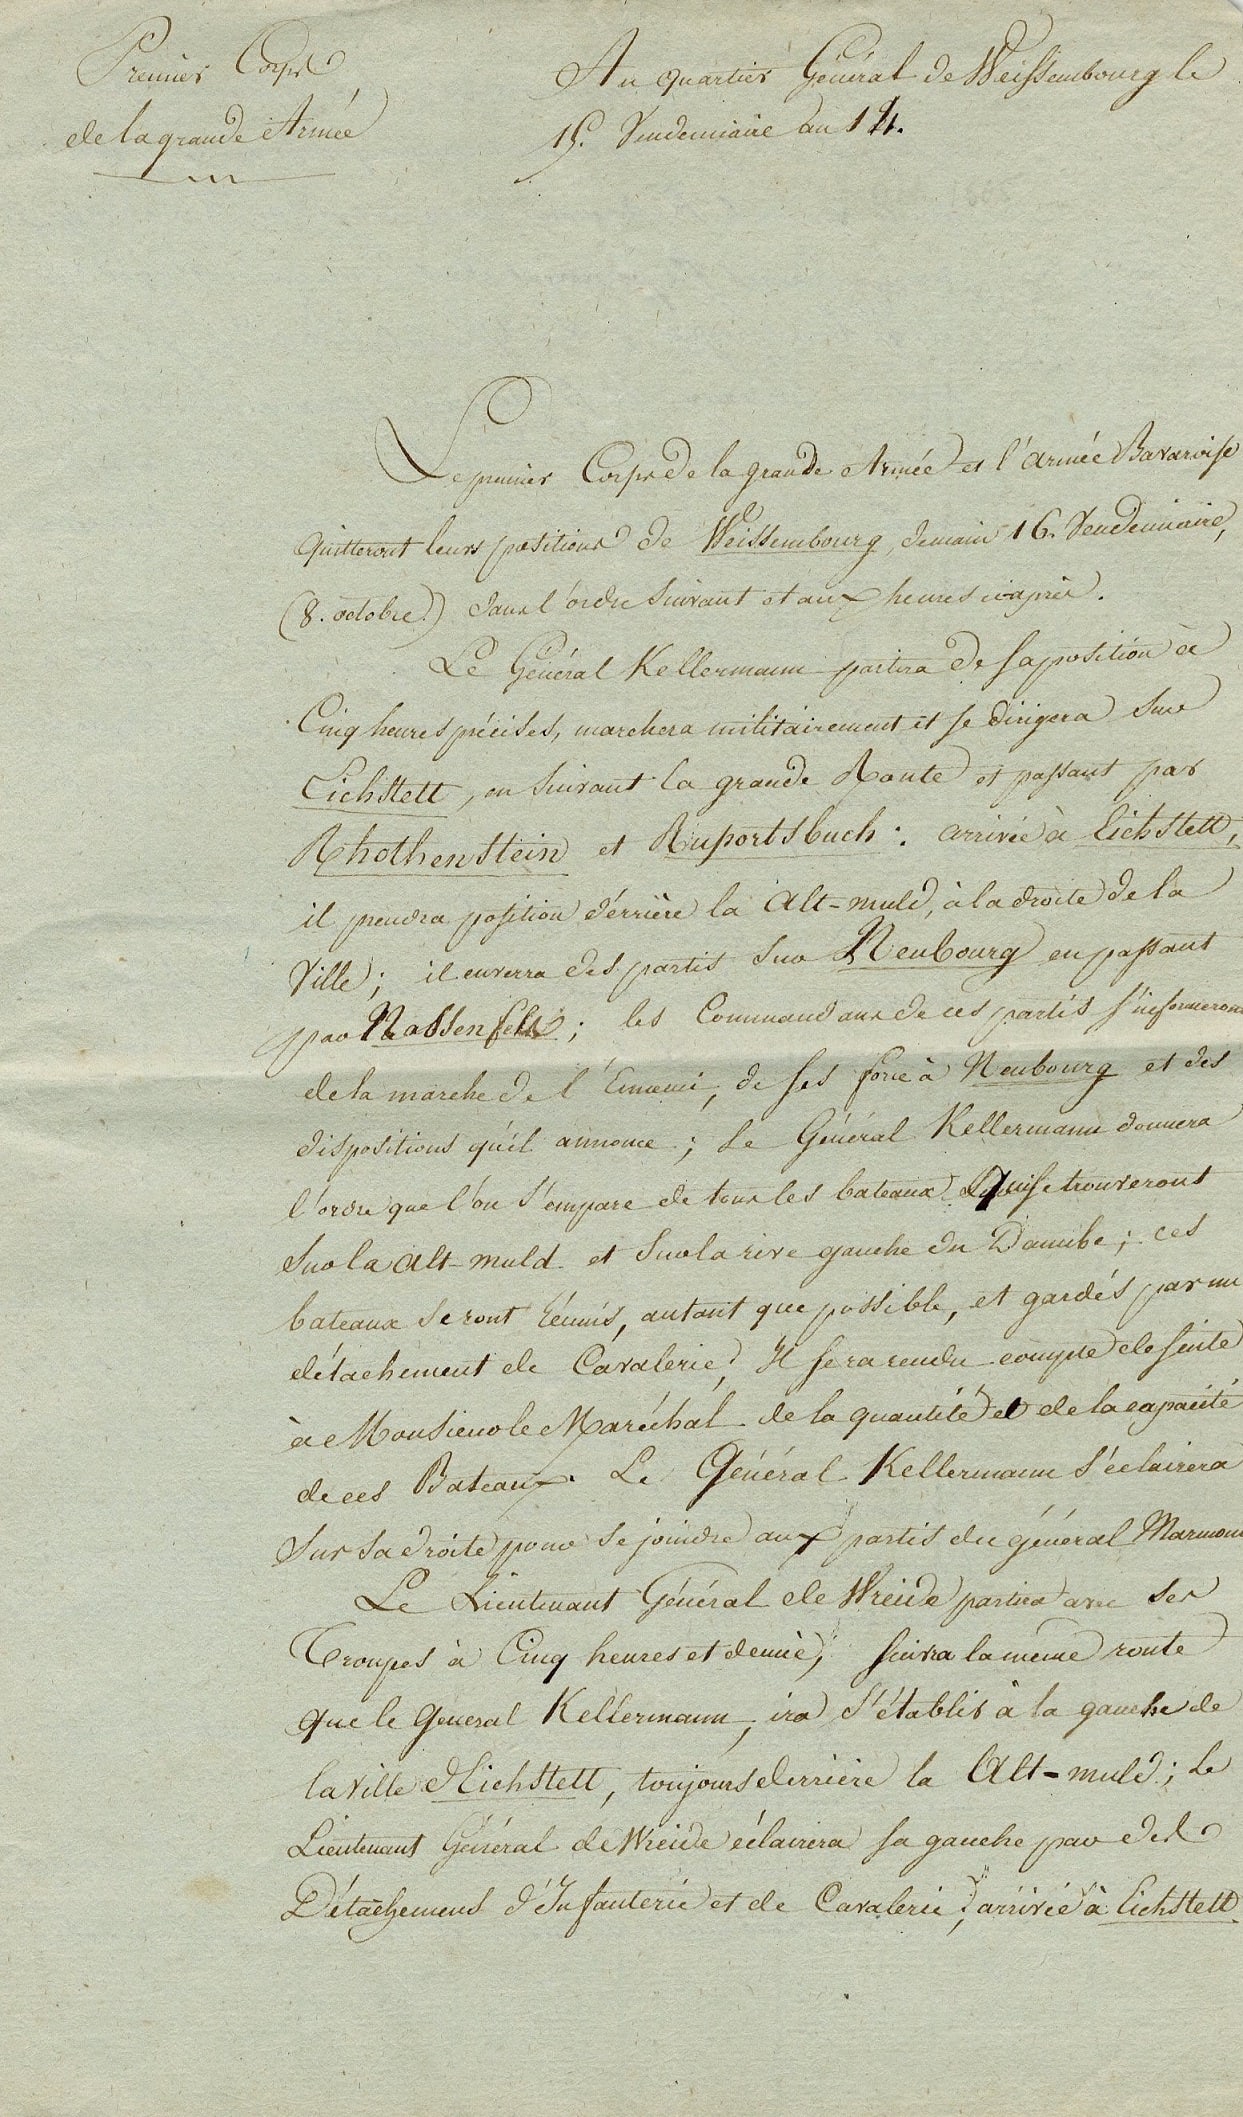 Premier Corps
de la grande Armée
Au quartier Général de Weissembourg le
15. Vendemiaire an 14.
Le premier Corps de la grande Armée et l'armée Bavaroise
quitteront leurs positions de Weissembourg, demain 16. Vendemiaire,
(8. octobre) dans l'ordre suivant et aux heures ci-après.
Le Général Kellermann partira de sa position à
Cinq heures précises, marchera militairement et se dirigera sur
Eichstett, en suivant la grande Route et passant par
Rhothenstein et Ruportsbuch : arrivée à Eichstett,
il prendra position dérrière la Alt-muld, à la droite de la
Ville ; il enverra des partis sur Neubourg en passant
par Nassenfels ; les Commandans de ces partis s'informeron
de la marche de l'Ennemi, de ses force à Neubourg et des
dispositions qu'il annonce ; Le Général Kellermann donnera
l'ordre que l'on s'empare de tous les bateaux qui se trouveront
sur la Alt-muld et sur la rive gauche du Danube ; ces
bateaux seront réunis, autant que possible, et gardés par un
détachement de Cavalerie, Il sera rendu compte de suite
à Monsieur le Maréchal de la quantité et de la capacité
de ces Bateaux. Le Général Kellermann s'éclairera
sur sa droite pour se joindre aux partis du général Marmon
Le Lieutenant Général de Wreide partira avec ses
Troupes à Cinq heures et demie, suivra la même route
que le Général Kellermann, ira s'établir à la gauche de
la Ville d'Eichstett, toujours derrière la Alt-muld ; Le
Lieutenant Général de Wreide éclairera sa gauche par des
Détachemens d'Infanterie et de Cavalerie, arrivée à Eichstett